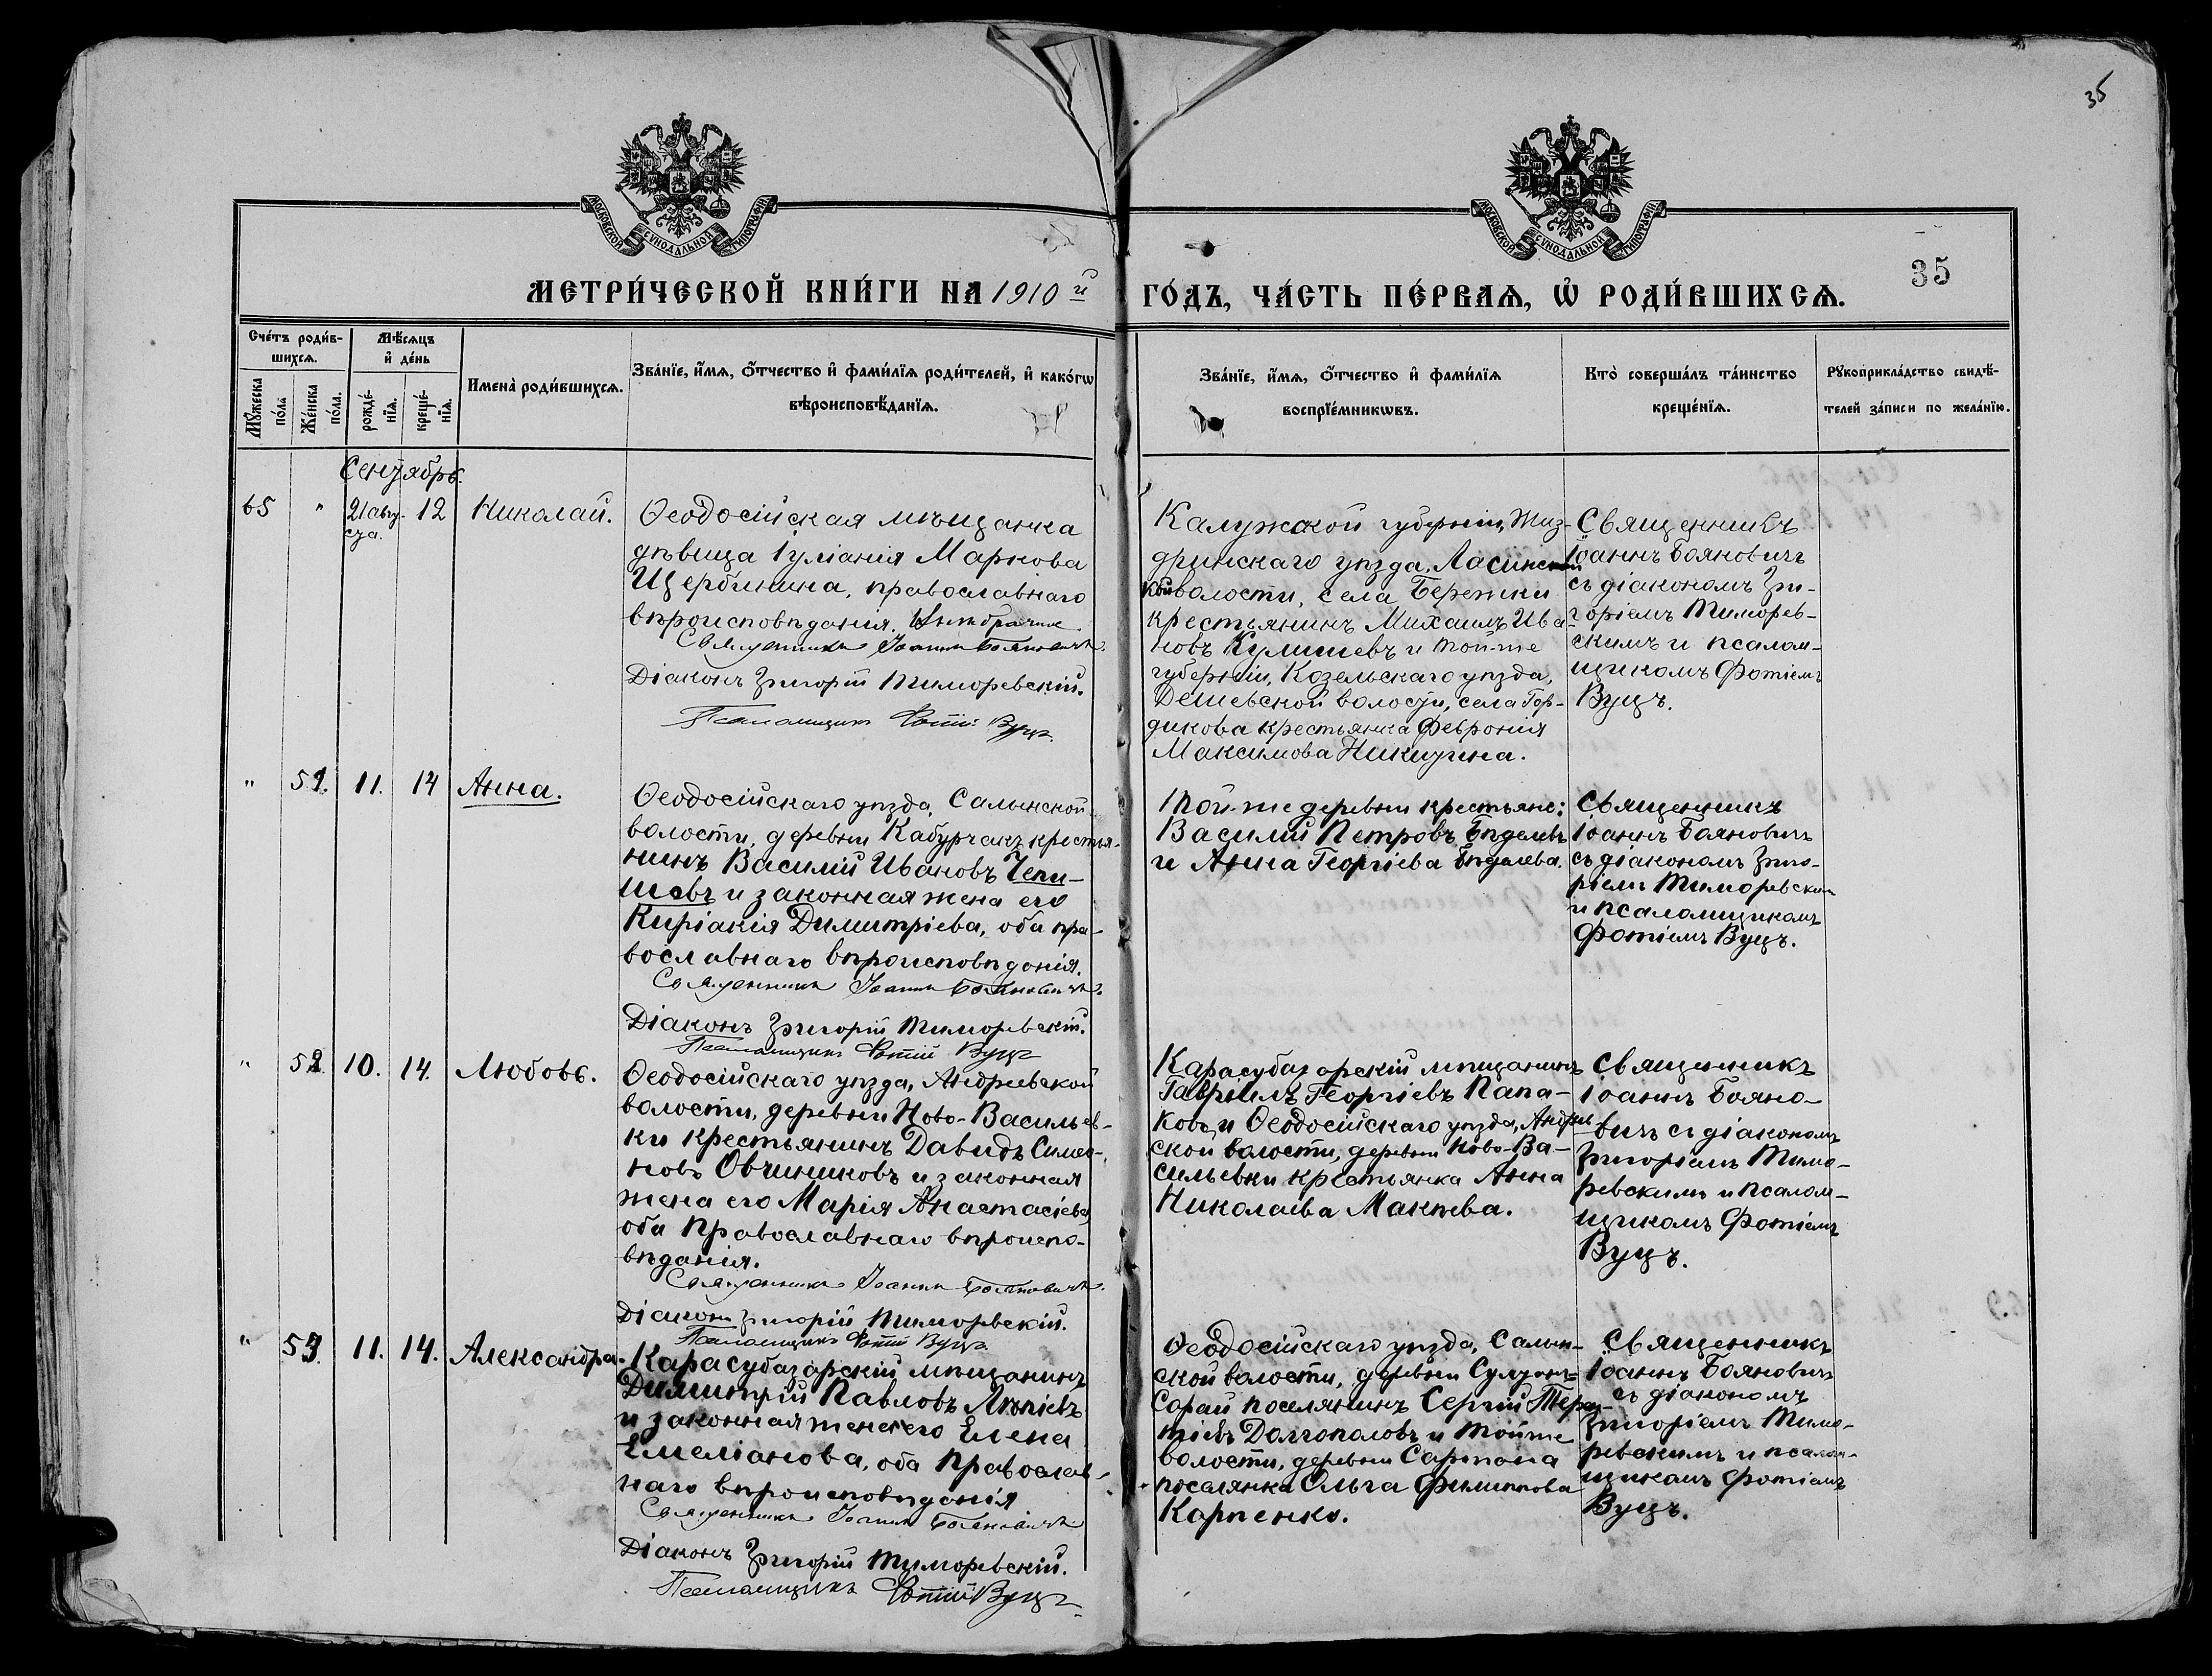 35
МОСКОВСКОЙ СУНОДАЛЬНОЙ ТИПОГРАФІИ
МОСКОВСКОЙ СУНОДАЛЬНОЙ ТИПОГРАФІИ
35
МЕТРИ́ЧЕСКОЙ КНИ́ГИ НА 1910 й ГО́ДЪ, ЧА́СТЬ ПЕ́РВАѦ, Ѡ҆ РОДИ́ВШИХСѦ.
Сче́тъ роди́в-
шихсѧ.
Мѣ́сѧцъ
и҆ де́нь
Мꙋ́жеска
по́ла
Же́нска
по́ла.
рожде́-
нїѧ.
креще́-
нїѧ.
Имена̀ роди́вшихсѧ.
Зва́нїе, и҆́мѧ, о҆́тчество и҆ фами́лїѧ роди́телей, и҆ како́гѡ
вѣроисповѣ́данїѧ.
Зва́нїе, и҆́мѧ, о҆́тчество и҆ фами́лїѧ
воспрїе́мникѡвъ.
Кто̀ соверша́лъ та́инство
креще́нїѧ.
Рꙋкоприкла́дство свидѣ́-
телей за́писи по жела́нїю.
Сентябрь.
65 " 21 авгу-
ста. 12 Николай.
Ѳеодосійская мѣщанка
дѣвица Іуліанія Маркова
Щербинина, православнаго
вѣроисповѣданія. Внебрачные
Священникъ Іоаннъ Бояновичъ.
Діаконъ Григорій Тиморевскій.
Псаломщикъ Фотій Вуцъ.
Калужской губерніи, Жиз-
дринскаго уѣзда, Ласинской
кой волости, села Бережки
крестьянинъ Михаилъ Ива-
новъ Кулишевъ и той-же
губерніи, Козельскаго уѣзда,
Дешевской волости, села Гор-
дикова крестьянка Февронія
Максимова Никитина.
Священникъ
Іоаннъ Бояновичъ
съ діакономъ Гри-
горіемъ Тиморев-
скимъ и псалом-
щикомъ Фотіемъ
Вуцъ.
" 51. 11. 14 Анна.
Ѳеодосійскаго уѣзда, Салынской
волости, деревни Кабурчакъ крестья-
нинъ Василій Ивановъ Чепи-
шевъ и законная жена его
Киріакія Димитріева, оба пра-
вославнаго вѣроисповѣданія.
Священникъ Іоаннъ Бояновичъ.
Діаконъ Григорій Тиморевскій.
Псаломщикъ Фотій Вуцъ
Той-же деревни крестьяне:
Василій Петровъ Бѣделевъ
и Анна Георгіева Бѣделева.
Священникъ
Іоаннъ Бояновичъ
съ діакономъ Григо-
ріемъ Тиморевскимъ
и псаломщикомъ
Фотіемъ Вуцъ.
" 52. 10. 14. Любовь.
Ѳеодосійскаго уѣзда, Андреевской
волости, деревни Ново-Васильев-
ки крестьянинъ Давидъ Симео-
новъ Овчинниковъ и законная
жена его Марія Анастасіева,
оба православнаго вѣроиспо-
вѣданія.
Священникъ Іоаннъ Бояновичъ.
Діаконъ Григорій Тиморевскій.
Псаломщикъ Фотій Вуцъ.
Карасубазарскій мѣщанинъ
Гавріилъ Георгіевъ Папа-
ковъ, и Ѳеодосійскаго уѣзда, Андреев-
ской волости, деревни Ново-Ва-
сильевки крестьянка Анна
Николаева Макѣева.
Священникъ
Іоаннъ Бояно-
вичъ съ діакономъ
Григоріемъ Тимо-
ревскимъ и псалом-
щикомъ Фотіемъ
Вуцъ.
" 53. 11. 14. Александра.
Карасубазарскій мѣщанинъ
Димитрій Павловъ
и законная жена его Елена
Емеліанова, оба православ-
наго вѣроисповѣданія
Священникъ Іоаннъ Бояновичъ
Діаконъ Григорій Тиморевскій.
Псаломщикъ Фотій Вуцъ
Ѳеодосійскаго уѣзда, Салын-
ской волости, деревни Султанъ-
Сарай поселянинъ Сергій Терен-
тіевъ Долгополовъ и той же
волости, деревни Сартана
поселянка Ольга Филиппова
Карпенко.
Священникъ
Іоаннъ Бояновичъ
съ діакономъ
Григоріемъ Тимо-
ревскимъ и псалом-
щикомъ Фотіемъ
Вуцъ.